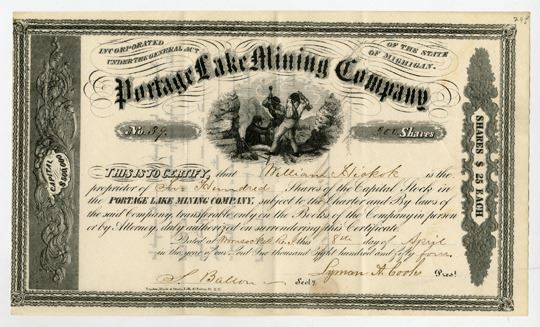 INCORPORATED
UNDER THE GENERAL ACT
OF THE STATE
OF MICHIGAN.
Portage Lake Mining Company
No. 84.
Shares
CAPITAL
SHARES $ 25 EACH
THIS IS TO CERTIFY, that William Hickok is the
proprietor of Hundred Shares of the Capital Stock in
the PORTAGE LAKE MINING COMPANY, subject to the Charter and By laws of
the said Company, transferable only on the Books of the Company in person
or by Attorney, duly authorized on surrendering this Certificate.
Dated at Woonsocket R. I. this 8th day of April
in the year of our Lord One thousand Eight hundred and fifty four
Lyman A. Cook Pres!
S. Ballou Secty.